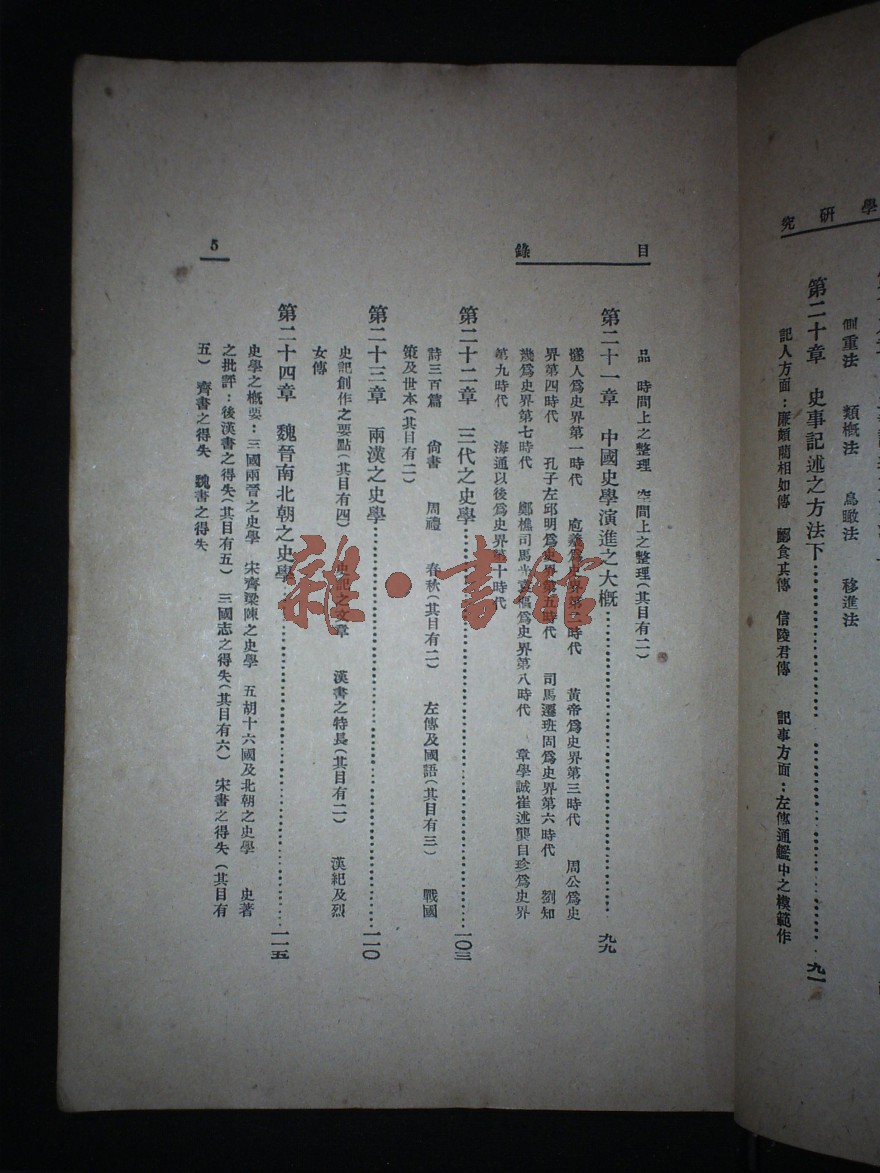 學研究
側重法　類概法　鳥瞰法　移進法
第二十章　史事記述之方法下……九一
記人方面：廉頗藺相如傳　酈食其傳　信陵君傳　記事方面：左傳通鑑中之模範作
目錄
品　時間上之整理　空間上之整理(其目有二)
第二十一章　中國史學演進之大概……九九
燧人爲史界第一時代　庖羲爲史界第二時代　黃帝爲史界第三時代　周公爲史
界第四時代　孔子左邱明爲史界第五時代　司馬遷班固爲史界第六時代　劉知
幾爲史界第七時代　鄭樵司馬光袁樞爲史界第八時代　章學誠崔述龔自珍爲史界
第九時代　海通以後爲史界第十時代
第二十二章　三代之史學……一〇三
詩三百篇　尙書　周禮　春秋(其目有二)　左傳及國語(其目有三)　戰國
策及世本(其目有二)
第二十三章　兩漢之史學……一一〇
史記創作之要點(其目有四)　史記之文章　漢書之特長(其目有二)　漢紀及烈
女傳
第二十四章　魏晉南北朝之史學……一一五
史學之概要：三國兩晉之史學　宋齊梁陳之史學　五胡十六國及北朝之史學　史著
之批評：後漢書之得失(其目有五)　三國志之得失(其目有六)　宋書之得失(其目有
五)　齊書之得失　魏書之得失
5
雜·書館